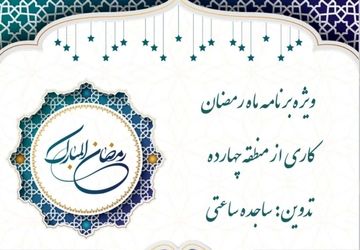 ویژه برنامه ماه رمضان
کاری از منطقه چهارده
تدوین: ساجده ساعتی
رمضان المبارک